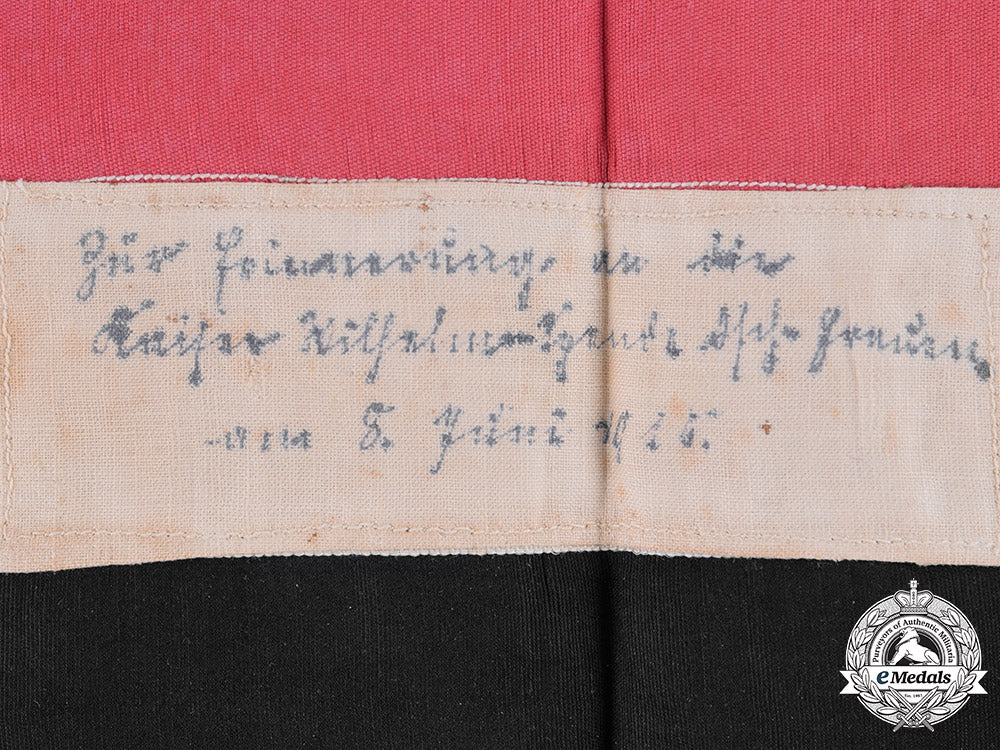 Zur Erinnerung an die
Kaiser Wilhelm-Spende dsch. Frauen
am 8. Juni
Purveyors of Authentic Militaria
eMedals
Est. 1967